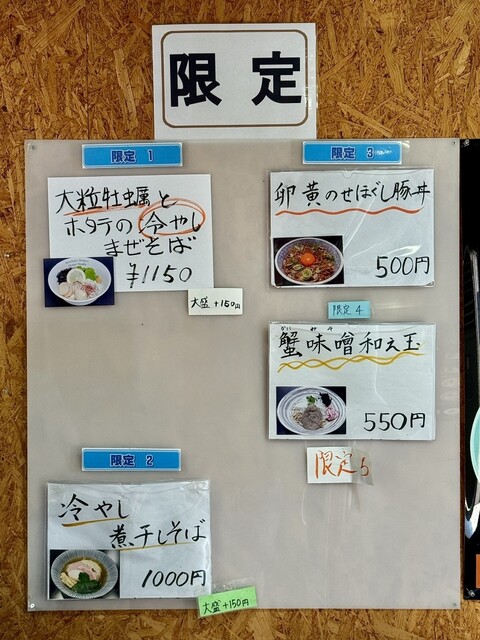 限定
限定 1
大粒牡蠣と
ホタテの冷やし
まぜそば
¥1150
大盛 +150円
限定 2
冷やし
煮干しそば
1000円
大盛 +150円
限定 3
卵黄のせほぐし豚丼
500円
限定 4
かに みそ
蟹味噌和え玉
550円
限定 5